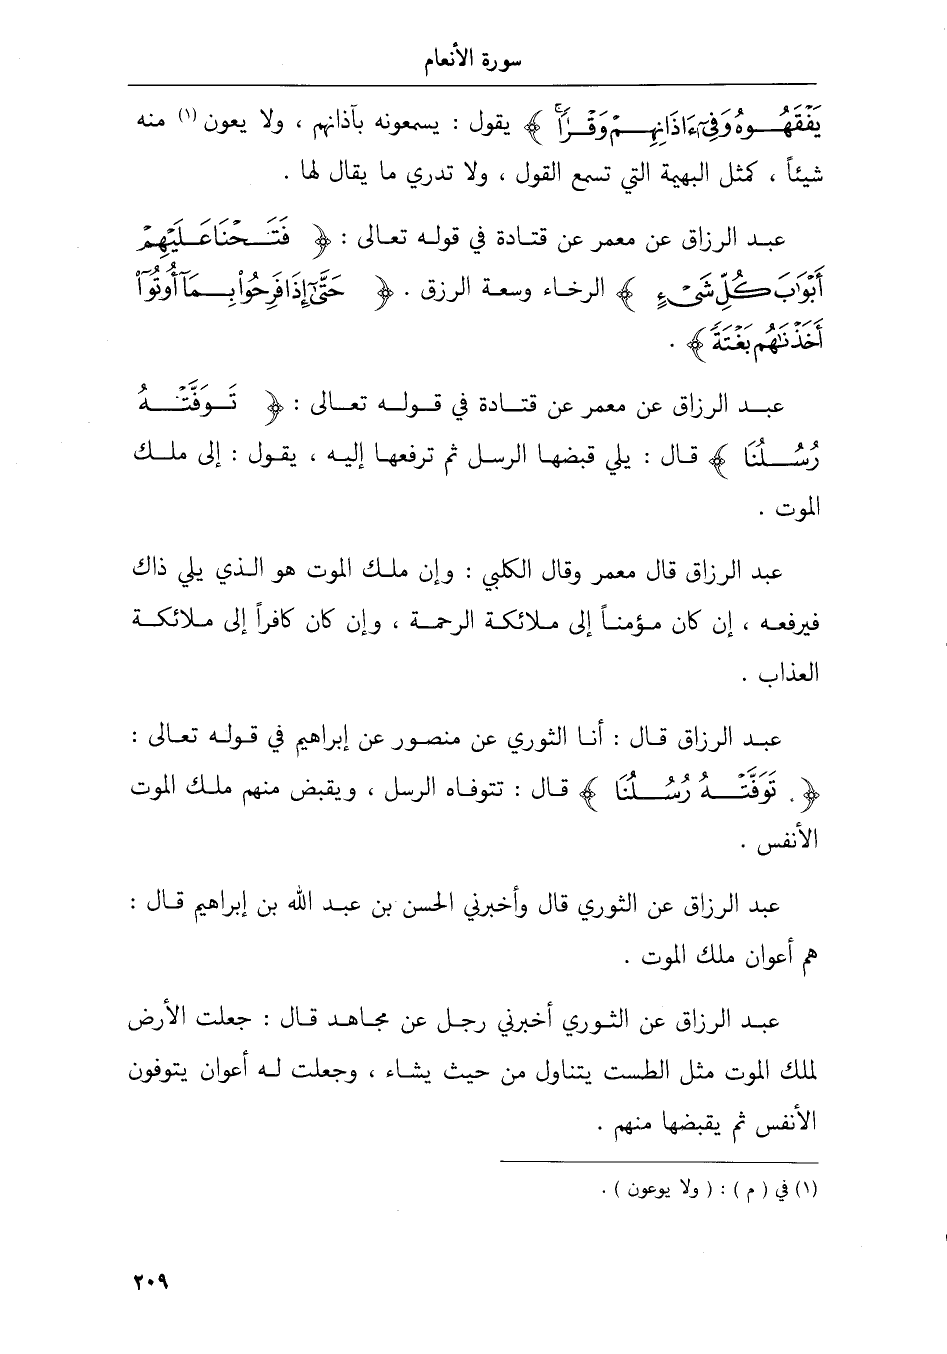 سورة الأنعام
يَفْقَهُوهُ وَفِىٓ ءَاذَانِهِمْ وَقْرًا ﴾ يقول : يسمعونه بآذانهم ، ولا يعون (١) منه
شيئاً ، كمثل البهيمة التي تسمع القول ، ولا تدري ما يقال لها .
عبد الرزاق عن معمر عن قتادة في قوله تعالى : ﴿ فَتَحْنَا عَلَيْهِمْ
أَبْوَٰبَ كُلِّ شَىْءٍ ﴾ الرخاء وسعة الرزق . ﴿ حَتَّىٰٓ إِذَا فَرِحُوا۟ بِمَآ أُوتُوٓا۟
أَخَذْنَٰهُم بَغْتَةً ﴾ .
عبد الرزاق عن معمر عن قتادة في قوله تعالى : ﴿ تَوَفَّتْهُ
رُسُلُنَا ﴾ قال : يلي قبضها الرسل ثم ترفعها إليه ، يقول : إلى ملك
الموت .
عبد الرزاق قال معمر وقال الكلبي : وإن ملك الموت هو الذي يلي ذاك
فيرفعه ، إن كان مؤمناً إلى ملائكة الرحمة ، وإن كان كافراً إلى ملائكة
العذاب .
عبد الرزاق قال : أنا الثوري عن منصور عن إبراهيم في قوله تعالى :
﴿ . تَوَفَّتْهُ رُسُلُنَا ﴾ قال : تتوفاه الرسل ، ويقبض منهم ملك الموت
الأنفس .
عبد الرزاق عن الثوري قال وأخبرني الحسن بن عبد الله بن إبراهيم قال :
هم أعوان ملك الموت .
عبد الرزاق عن الثوري أخبرني رجل عن مجاهد قال : جعلت الأرض
لملك الموت مثل الطست يتناول من حيث يشاء ، وجعلت له أعوان يتوفون
الأنفس ثم يقبضها منهم .
(١) في ( م ) : ( ولا يوعون ) .
٢٠٩